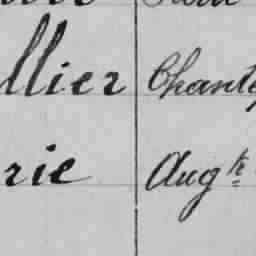 llier Chante
rie Augte